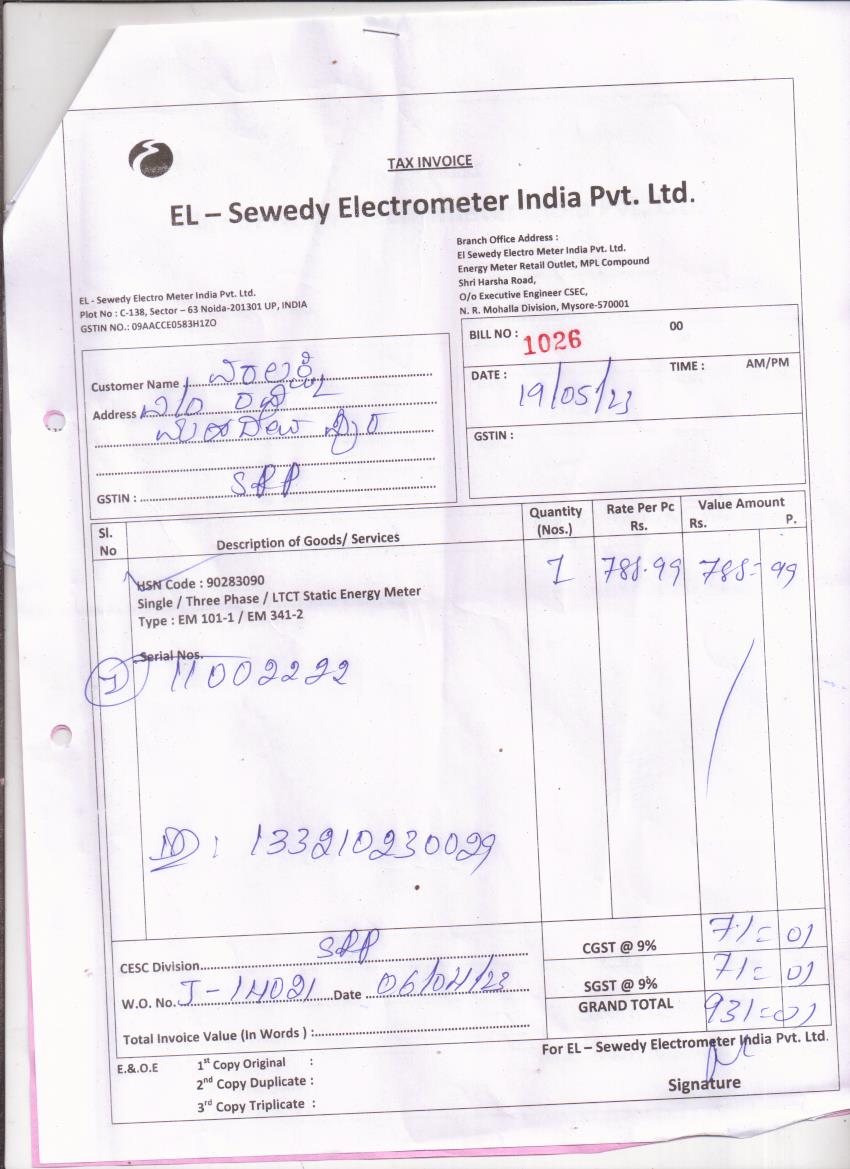 TAX INVOICE
EL – Sewedy Electrometer India Pvt. Ltd.
EL - Sewedy Electro Meter India Pvt. Ltd.
Plot No : C-138, Sector – 63 Noida-201301 UP, INDIA
GSTIN NO.: 09AACCE0583H1ZO
Branch Office Address :
El Sewedy Electro Meter India Pvt. Ltd.
Energy Meter Retail Outlet, MPL Compound
Shri Harsha Road,
O/o Executive Engineer CSEC,
N. R. Mohalla Division, Mysore-570001
Customer Name
Address
GSTIN : SPP
BILL NO : 1026 00
DATE : 19/05/23 TIME : AM/PM
GSTIN :
Sl. No Description of Goods/ Services Quantity (Nos.) Rate Per Pc Rs. Value Amount Rs. P.
HSN Code : 90283090 1 788.99 788= 99
Single / Three Phase / LTCT Static Energy Meter
Type : EM 101-1 / EM 341-2
Serial Nos.
1 11002222
133210230029
CESC Division SPP
W.O. No. J-14021 Date 06/04/23
Total Invoice Value (In Words ) :
CGST @ 9% 71= 01
SGST @ 9% 71= 01
GRAND TOTAL 931=01
For EL – Sewedy Electrometer India Pvt. Ltd.
Signature
E.&.O.E 1st Copy Original :
2nd Copy Duplicate :
3rd Copy Triplicate :